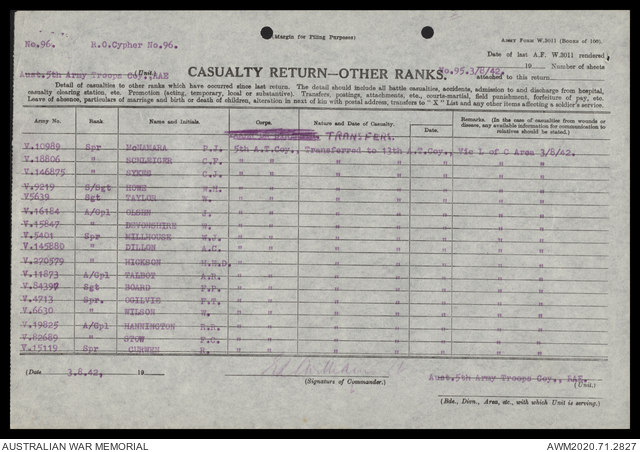 (Margin for Filing Purposes)
ARMY FORM W.3011 (Books of 100).
No.96. R.O.Cypher No.96.
Date of last A.F. W.3011 rendered
19 Number of sheets
No.95.3/8/42.
attached to this return
Aust.5th Army Troops Coy., RAE (Unit)
CASUALTY RETURN—OTHER RANKS.
Detail of casualties to other ranks which have occurred since last return. The detail should include all battle casualties, accidents, admission to and discharge from hospital,
casualty clearing station, etc. Promotion (acting, temporary, local or substantive). Transfers, postings, attachments, etc., courts-martial, field punishment, forfeiture of pay, etc.
Leave of absence, particulars of marriage and birth or death of children, alteration in next of kin with postal address, transfers to "X" List and any other items affecting a soldier's service.
Army No. Rank. Name and Initials. Corps. Nature and Date of Casualty. Date. Remarks. (In the case of casualties from wounds or disease, any available information for communication to relatives should be stated.)
TRANSFERS.
V.10989 Spr McNAMARA P.J. 5th A.T.Coy., Transferred to 13th A.T.Coy., Vic L of C Area 3/8/42.
V.18806 " SCHLEIGER C.F. " " " " " "
V.146875 " SYKES C.J. " " " " " "
V.9219 S/Sgt HOWE W.H. " " " " " "
V5639 Sgt TAYLOR W. " " " " " "
V.16184 A/Cpl OLSEN J. " " " " " "
V.15847 " DEVONSHIRE W. " " " " " "
V.5401 Spr MILLHOUSE W.J. " " " " " "
V.145880 " DILLON A.C. " " " " " "
V.270579 " HICKSON H.E.D. " " " " " "
V.11873 A/Cpl TALBOT A.R. " " " " " "
V.84397 Sgt BOARD F.P. " " " " " "
V.4713 Spr. OGILVIE P.T. " " " " " "
V.6630 " WILSON W. " " " " " "
V.19825 A/Cpl HANNINGTON R.R. " " " " " "
V.82689 " STOW F.C. " " " " " "
V.15119 Spr CURWEN R. " " " " " "
(Date 3.8.42. 19
(Signature of Commander.)
Aust.5th Army Troops Coy., RAE.
(Unit.)
(Bde., Divn., Area, etc., with which Unit is serving.)
AUSTRALIAN WAR MEMORIAL AWM2020.71.2827